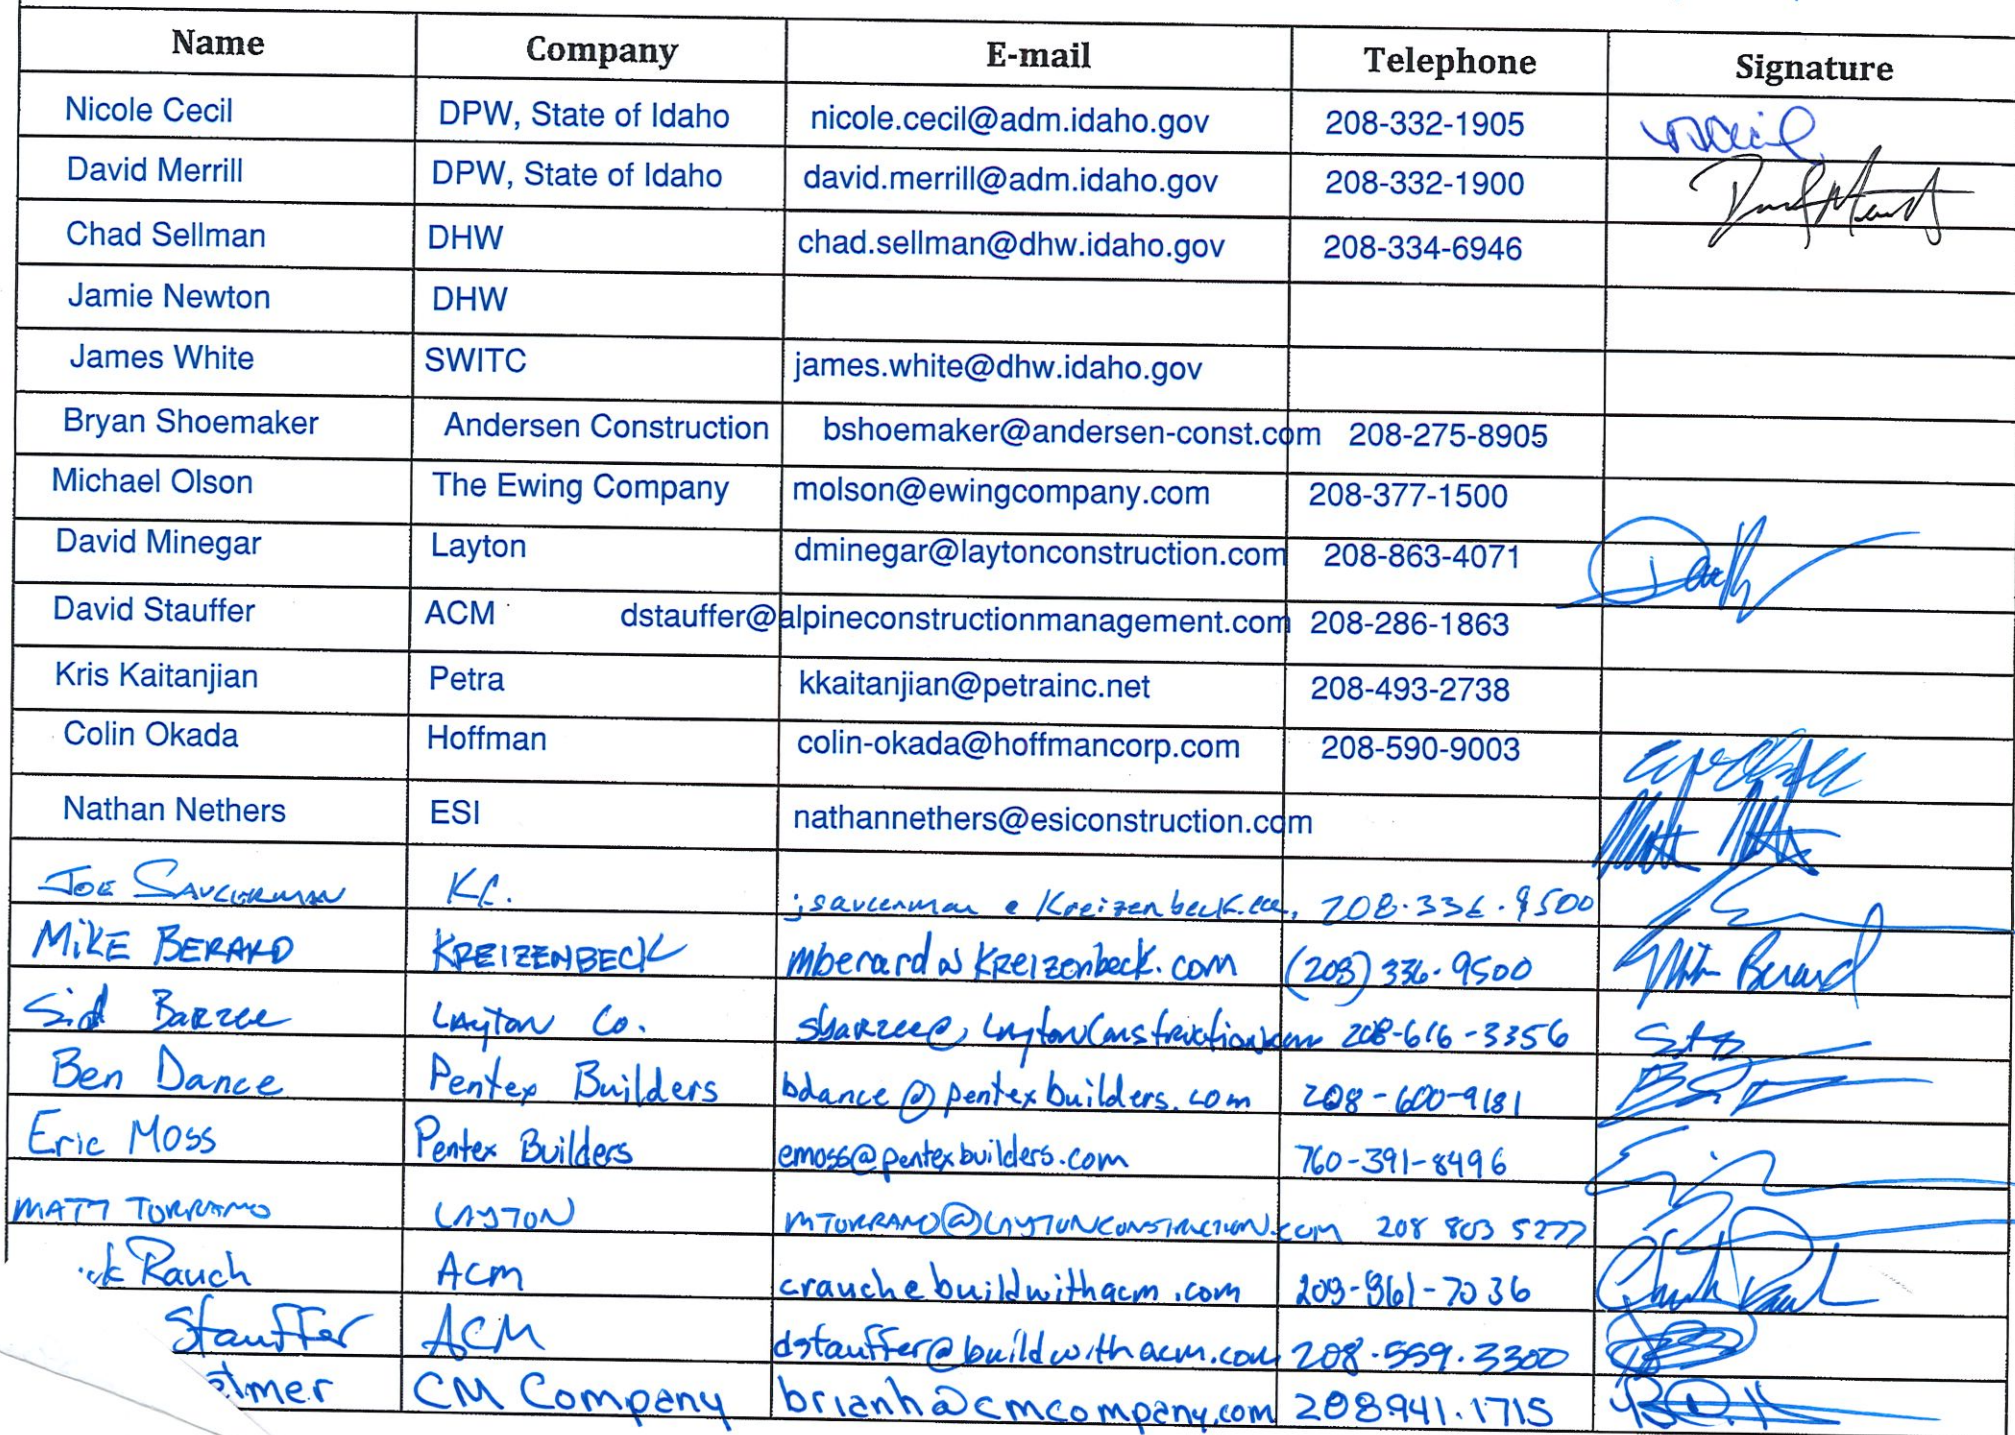 Name Company E-mail Telephone Signature
Nicole Cecil DPW, State of Idaho nicole.cecil@adm.idaho.gov 208-332-1905
David Merrill DPW, State of Idaho david.merrill@adm.idaho.gov 208-332-1900
Chad Sellman DHW chad.sellman@dhw.idaho.gov 208-334-6946
Jamie Newton DHW
James White SWITC james.white@dhw.idaho.gov
Bryan Shoemaker Andersen Construction bshoemaker@andersen-const.com 208-275-8905
Michael Olson The Ewing Company molson@ewingcompany.com 208-377-1500
David Minegar Layton dminegar@laytonconstruction.com 208-863-4071
David Stauffer ACM dstauffer@alpineconstructionmanagement.com 208-286-1863
Kris Kaitanjian Petra kkaitanjian@petrainc.net 208-493-2738
Colin Okada Hoffman colin-okada@hoffmancorp.com 208-590-9003
Nathan Nethers ESI nathannethers@esiconstruction.com
JOE SAUCERMAN KC. 208.336.9500
MIKE BERARD KREIZENBECK mberard@KREIZENbeck.com (208) 336-9500 Mike Berard
Sid Barzee Layton Co. sbarzee@LaytonConstruction.com 208-616-3356
Ben Dance Pentex Builders bdance@pentexbuilders.com 208-600-9181
Eric Moss Pentex Builders emoss@pentexbuilders.com 760-391-8496
MATT TURRANO LAYTON MTURRANO@LAYTONCONSTRUCTION.COM 208 803 5277
ck Rauch ACM crauch@buildwithacm.com 209-961-7036 Chuck Rauch
Stauffer ACM dstauffer@buildwithacm.com 208.559.3300
elmer CM Company brianh@cmcompany.com 208 941.1715